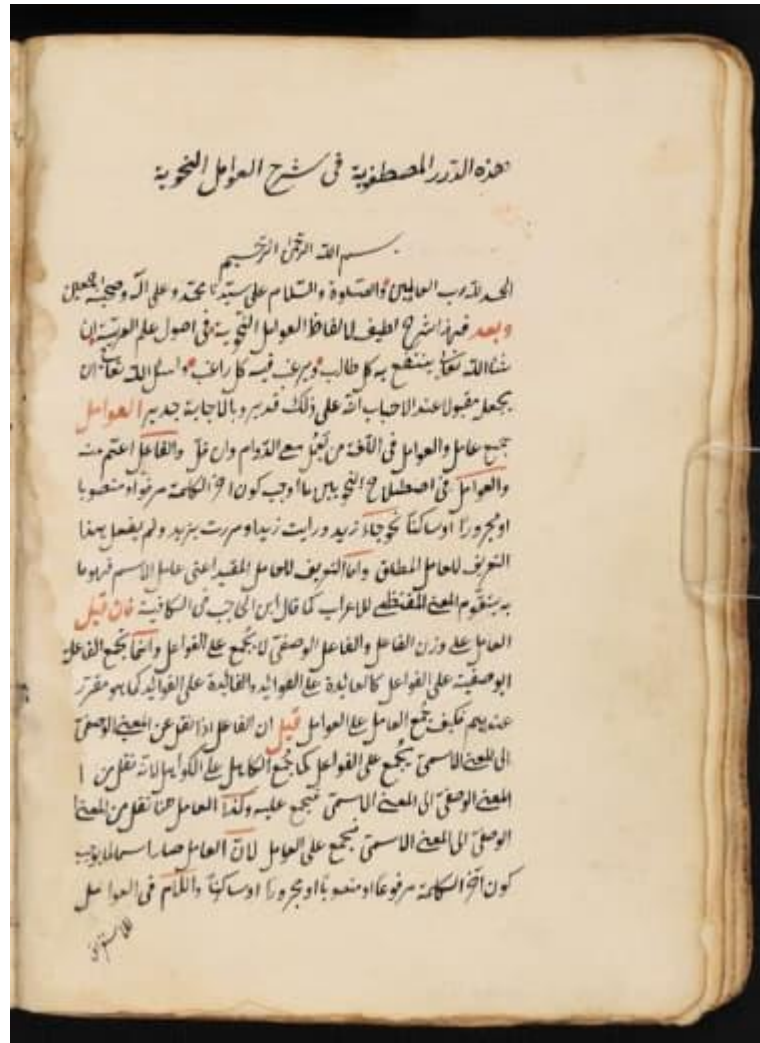 هذه الدرر المصطفوية فى شرح العوامل النحوية
بسم الله الرحمن الرحيم
الحمد لله رب العالمين والصلوة والسلام على سيدنا محمد وعلى آله وصحبه اجمعين
وبعد فهذا شرح لطيف لالفاظ العوامل النحوية فى اصول علم العربية ان
شاء الله تعالى ينتفع به كل طالب ويرغب فيه كل راغب واسئل الله تعالى ان
يجعل مقبولا عند الاحباب انه على ذلك قدير وبالاجابة جدير العوامل
جمع عامل والعوامل فى اللغة من يعمل مع الدوام وان قل والفاعل اعم منه
والعوامل فى اصطلاح النحويين ما اوجب كون اخر الكلمة مرفوعا او منصوبا
او مجرورا او ساكنا نحو جاء زيد ورايت زيدا ومررت بزيد ولم يفعل هذا
التعريف للعامل المطلق واما التعريف للعامل المقيد اعنى عامل الاسم فهو ما
به يتقوم المعنى المقتضى للاعراب كما قال ابن الحاجب فى الكافية فان قيل
العامل على وزن الفاعل والفاعل الوصفى لا يجمع على الفواعل وانما يجمع الفاعلة
الوصفية على الفواعل كالعايدة على العوايد والفائدة على الفوائد كما هو مقرر
عندهم فكيف جمع العامل على العوامل قيل ان الفاعل اذا نقل عن المعنى الوصفى
الى المعنى الاسمى يجمع على الفواعل كما يجمع الكاهل على الكواهل لانه نقل من
المعنى الوصفى الى المعنى الاسمى فيجمع عليه وكذا العامل هنا نقل من المعنى
الوصفى الى المعنى الاسمى فيجمع على العوامل لان العامل صار اسما لما يوجب
كون اخر الكلمة مرفوعا او منصوبا او مجرورا او ساكنا واللام فى العوامل
للاستغراق